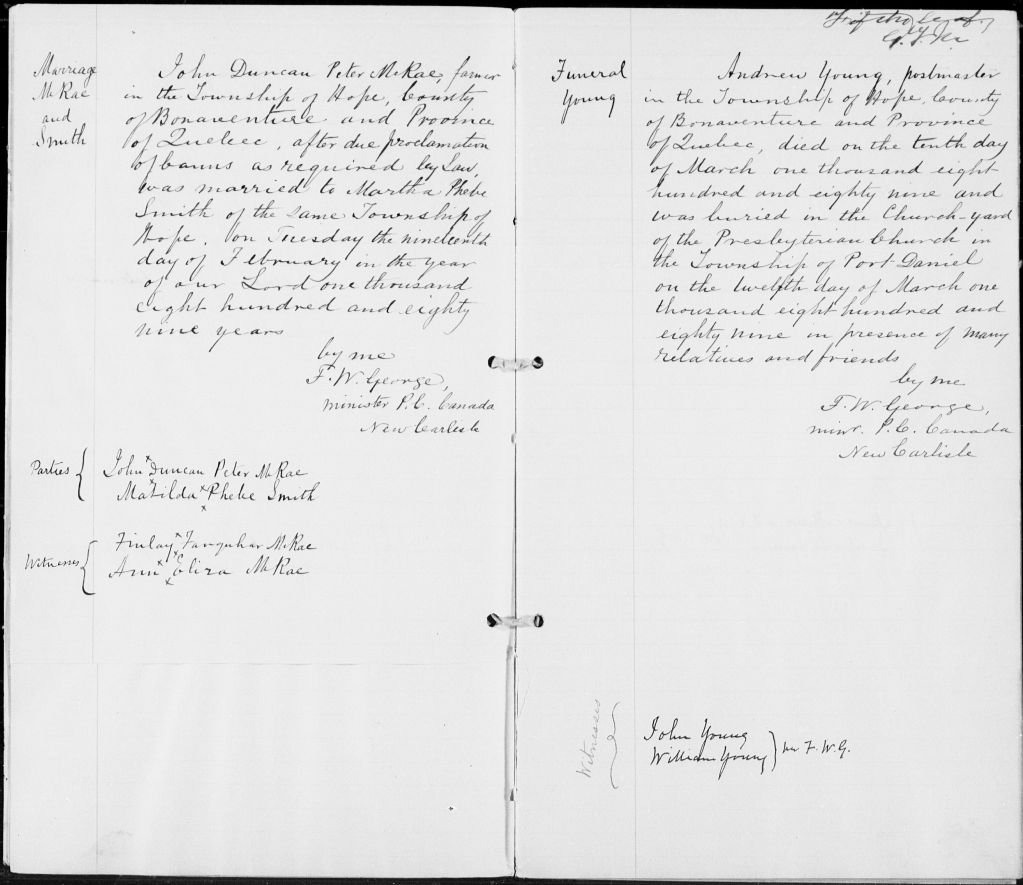 Marriage
McRae
and
Smith
John Duncan Peter McRae, farmer
in the Township of Hope, County
of Bonaventure and Province
of Quebec, after due proclamation
of banns as required by Law,
was married to Martha Phebe
Smith of the same Township of
Hope, on Tuesday the nineteenth
day of February in the year
of our Lord one thousand
eight hundred and eighty
nine years
by me
F. W. George,
minister P. C. Canada
New Carlisle
Parties
John x Duncan Peter McRae
Matilda x Phebe Smith
Witnesses
Finlay x Farquhar McRae
Ann x Eliza McRae
Funeral
Young
Andrew Young, postmaster
in the Township of Hope, County
of Bonaventure and Province
of Quebec, died on the tenth day
of March one thousand eight
hundred and eighty nine and
was buried in the Church-yard
of the Presbyterian Church in
the Township of Port Daniel
on the twelfth day of March one
thousand eight hundred and
eighty nine in presence of many
relatives and friends
by me
F. W. George,
minr. P. C. Canada
New Carlisle
Witnesses
John Young
William Young
F. W. G.